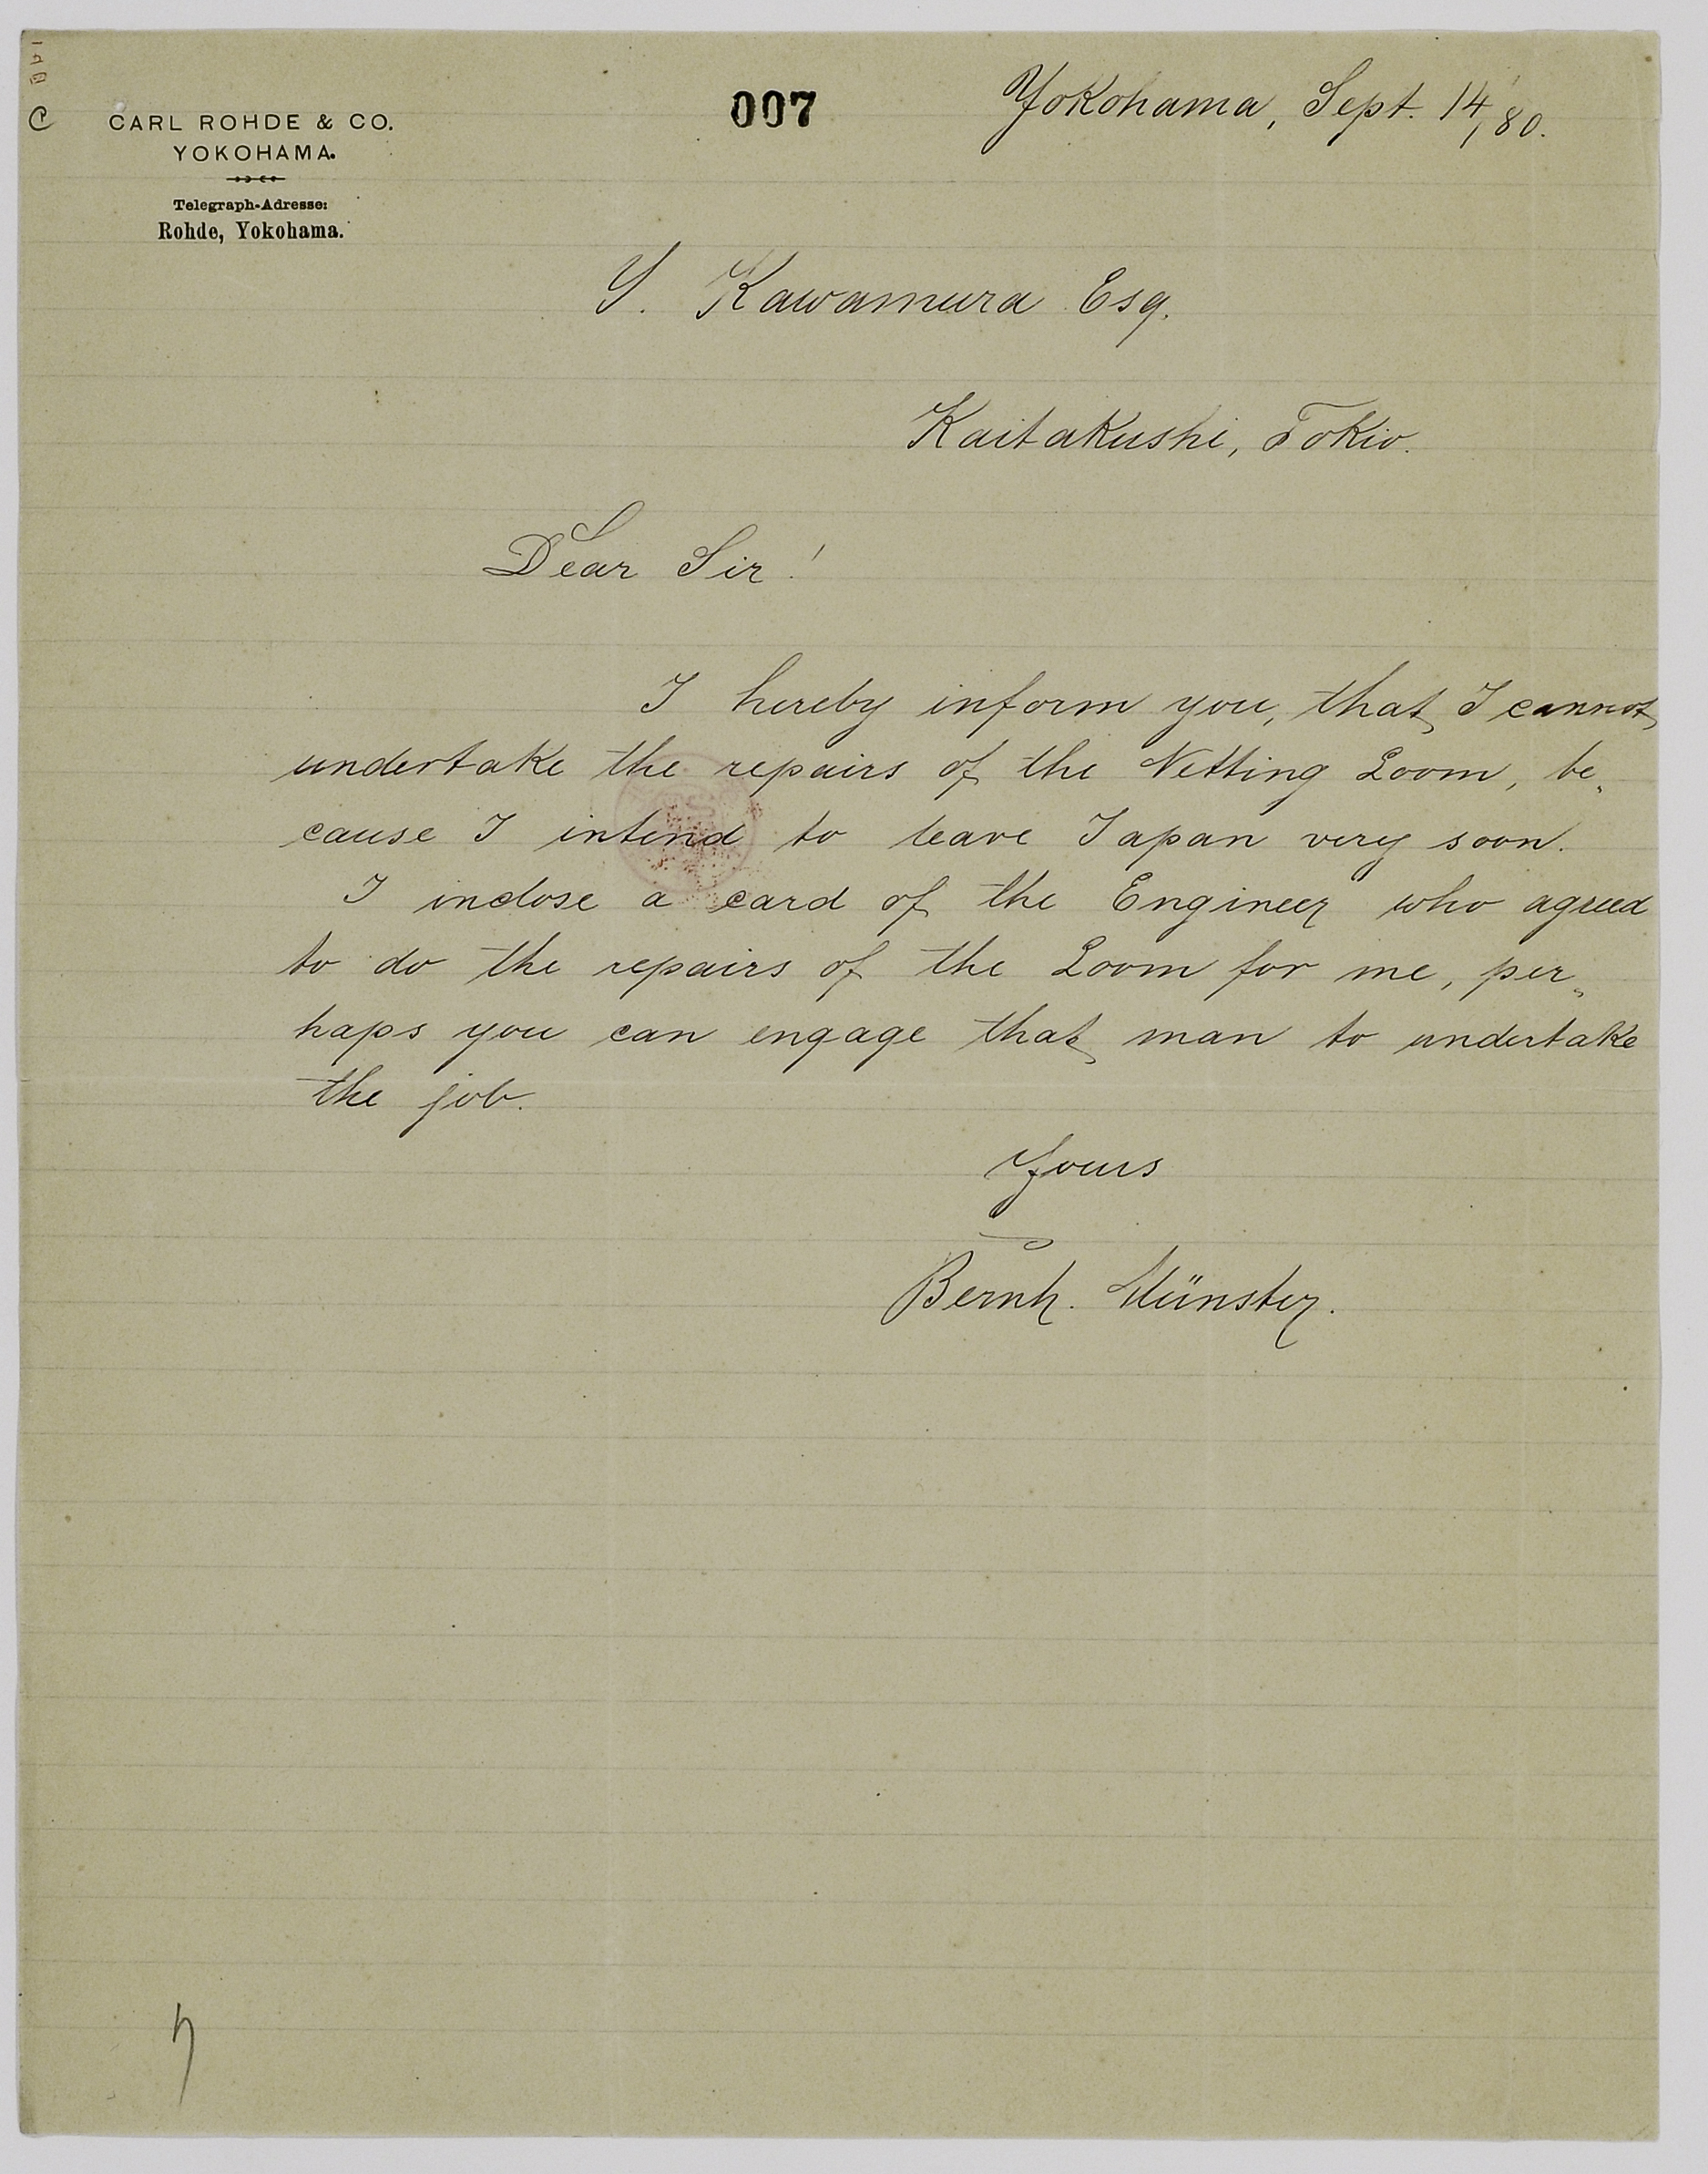 CARL ROHDE & CO.
YOKOHAMA.
Telegraph-Adresse:
Rohde, Yokohama.
007
Yokohama, Sept. 14/80.
Kawamura Esq.
Kaitakushi, Tokio.
Dear Sir!
I hereby inform you, that I cannot
undertake the repairs of the Netting Loom, be-
cause I intend to leave Japan very soon.
I inclose a card of the Engineer who agreed
to do the repairs of the Loom for me, per-
haps you can engage that man to undertake
the job.
Yours
Bernh. Münster.
7